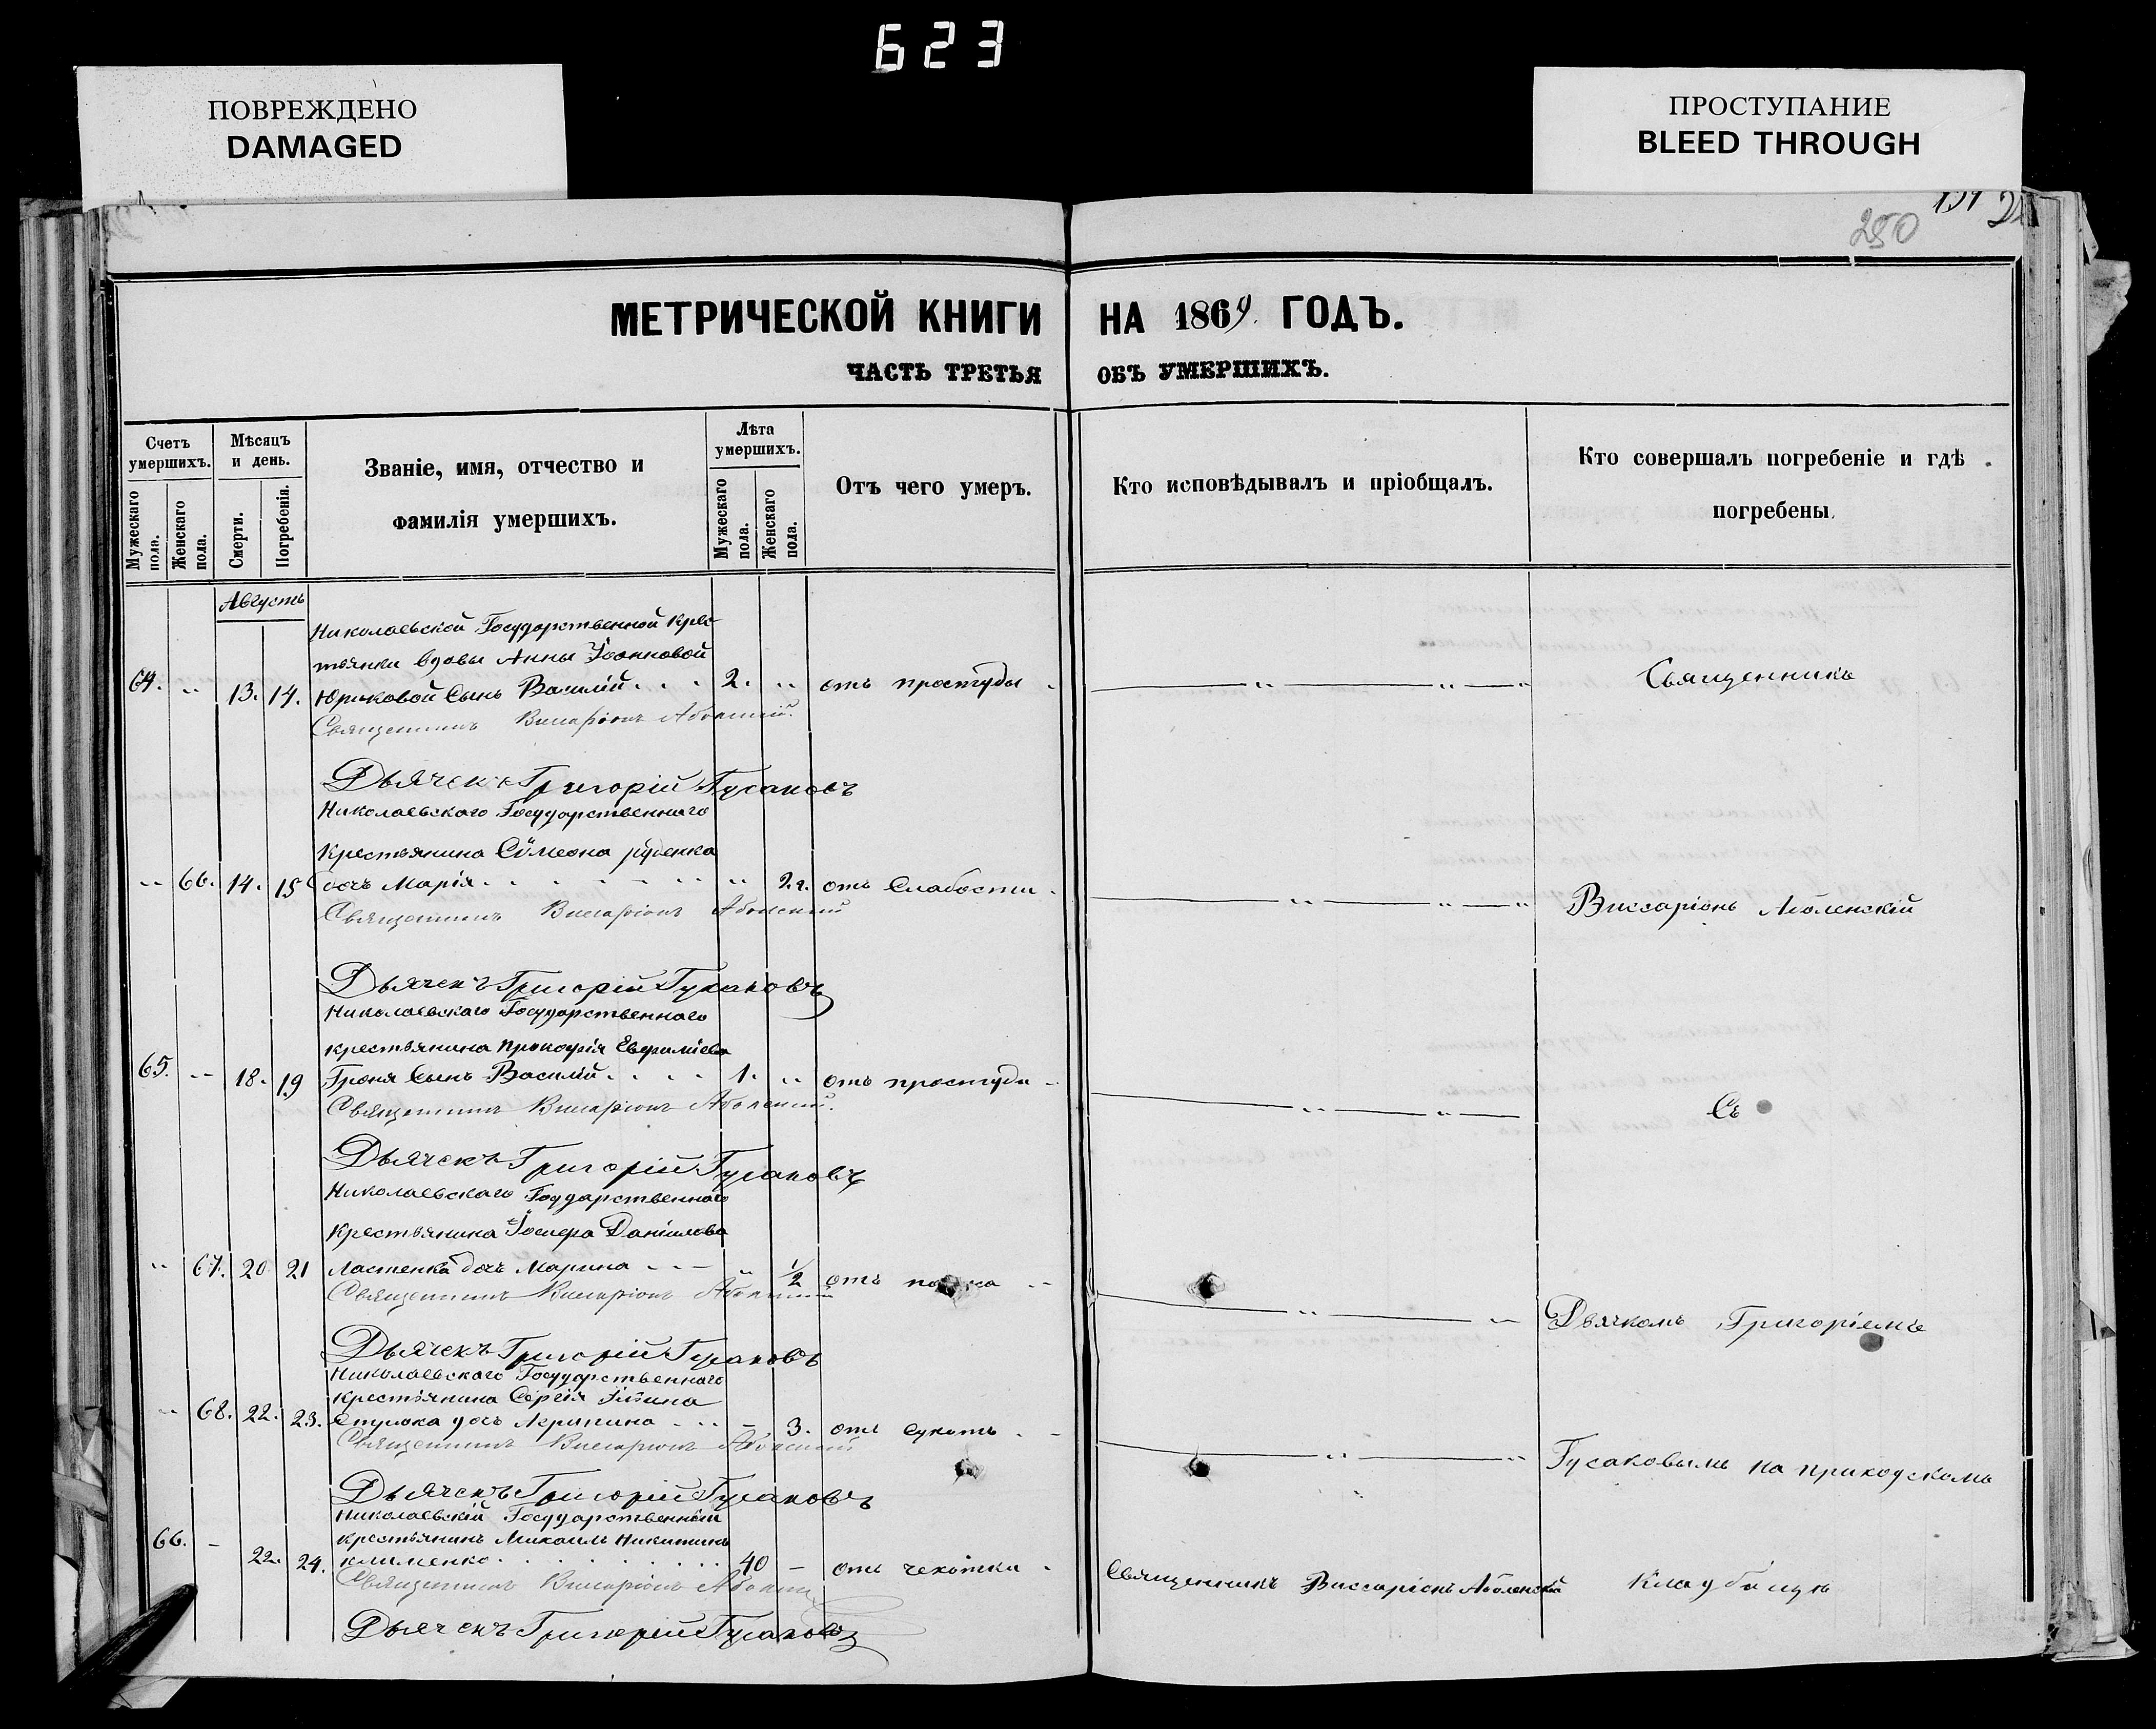 623
ПОВРЕЖДЕНО
DAMAGED
ПРОСТУПАНИЕ
BLEED THROUGH
250
МЕТРИЧЕСКОЙ КНИГИ НА 1869 ГОДЪ.
ЧАСТЬ ТРЕТЬЯ ОБЪ УМЕРШИХЪ.
Счетъ умершихъ.
Мужескаго пола.
Женскаго пола.
Мѣсяцъ и день.
Смерти.
Погребенія.
Званіе, имя, отчество и
фамилія умершихъ.
Лѣта умершихъ.
Мужескаго пола.
Женскаго пола.
Отъ чего умеръ.
Кто исповѣдывалъ и пріобщалъ.
Кто совершалъ погребеніе и гдѣ
погребены.
Августъ
Николаевской Государственной крес
тьянки вдовы Анны Іоанновой
64. „ 13. 14. Юрковой сынъ Василій 2. „ отъ простуды — „ — „ — „ Священникъ
Священникъ Виссаріонъ Аболенскій.
Дьячекъ Григорій Гусаковъ
Николаевскаго Государственнаго
Крестьянина Сѵмеона
„ 66. 14. 15 дочь Марія „ 2 г. отъ слабости — „ — „ — „ Виссаріонъ Аболенскій
Священникъ Виссаріонъ Аболенскій
Дьячекъ Григорій Гусаковъ
Николаевскаго Государственнаго
крестьянина Прокофія Евфиміева
65. „ 18. 19 сынъ Василій 1. „ отъ простуды — „ — „ — Съ
Священникъ Виссаріонъ Аболенскій.
Дьячекъ Григорій Гусаковъ
Николаевскаго Государственнаго
Крестьянина Іосифа Даніилова
„ 67. 20 21 Ластенка дочь Марина „ 1/2 отъ — „ — „ Дьячкомъ Григоріемъ
Священникъ Виссаріонъ Аболенскій
Дьячекъ Григорій Гусаковъ
Николаевскаго Государственнаго
крестьянина Сергія
„ 68. 22. 23. дочь Агрипина – 3. отъ сухотъ — „ — „ Гусаковымъ на приходскомъ
Священникъ Виссаріонъ Аболенскій
Дьячекъ Григорій Гусаковъ
Николаевскій Государственный
крестьянинъ Михаилъ Никитинъ
66. – 22. 24. Клименко 40 – отъ чехотки Священникъ Виссаріонъ Аболенскій кладбищѣ
Священникъ Виссаріонъ Аболенскій
Дьячекъ Григорій Гусаковъ